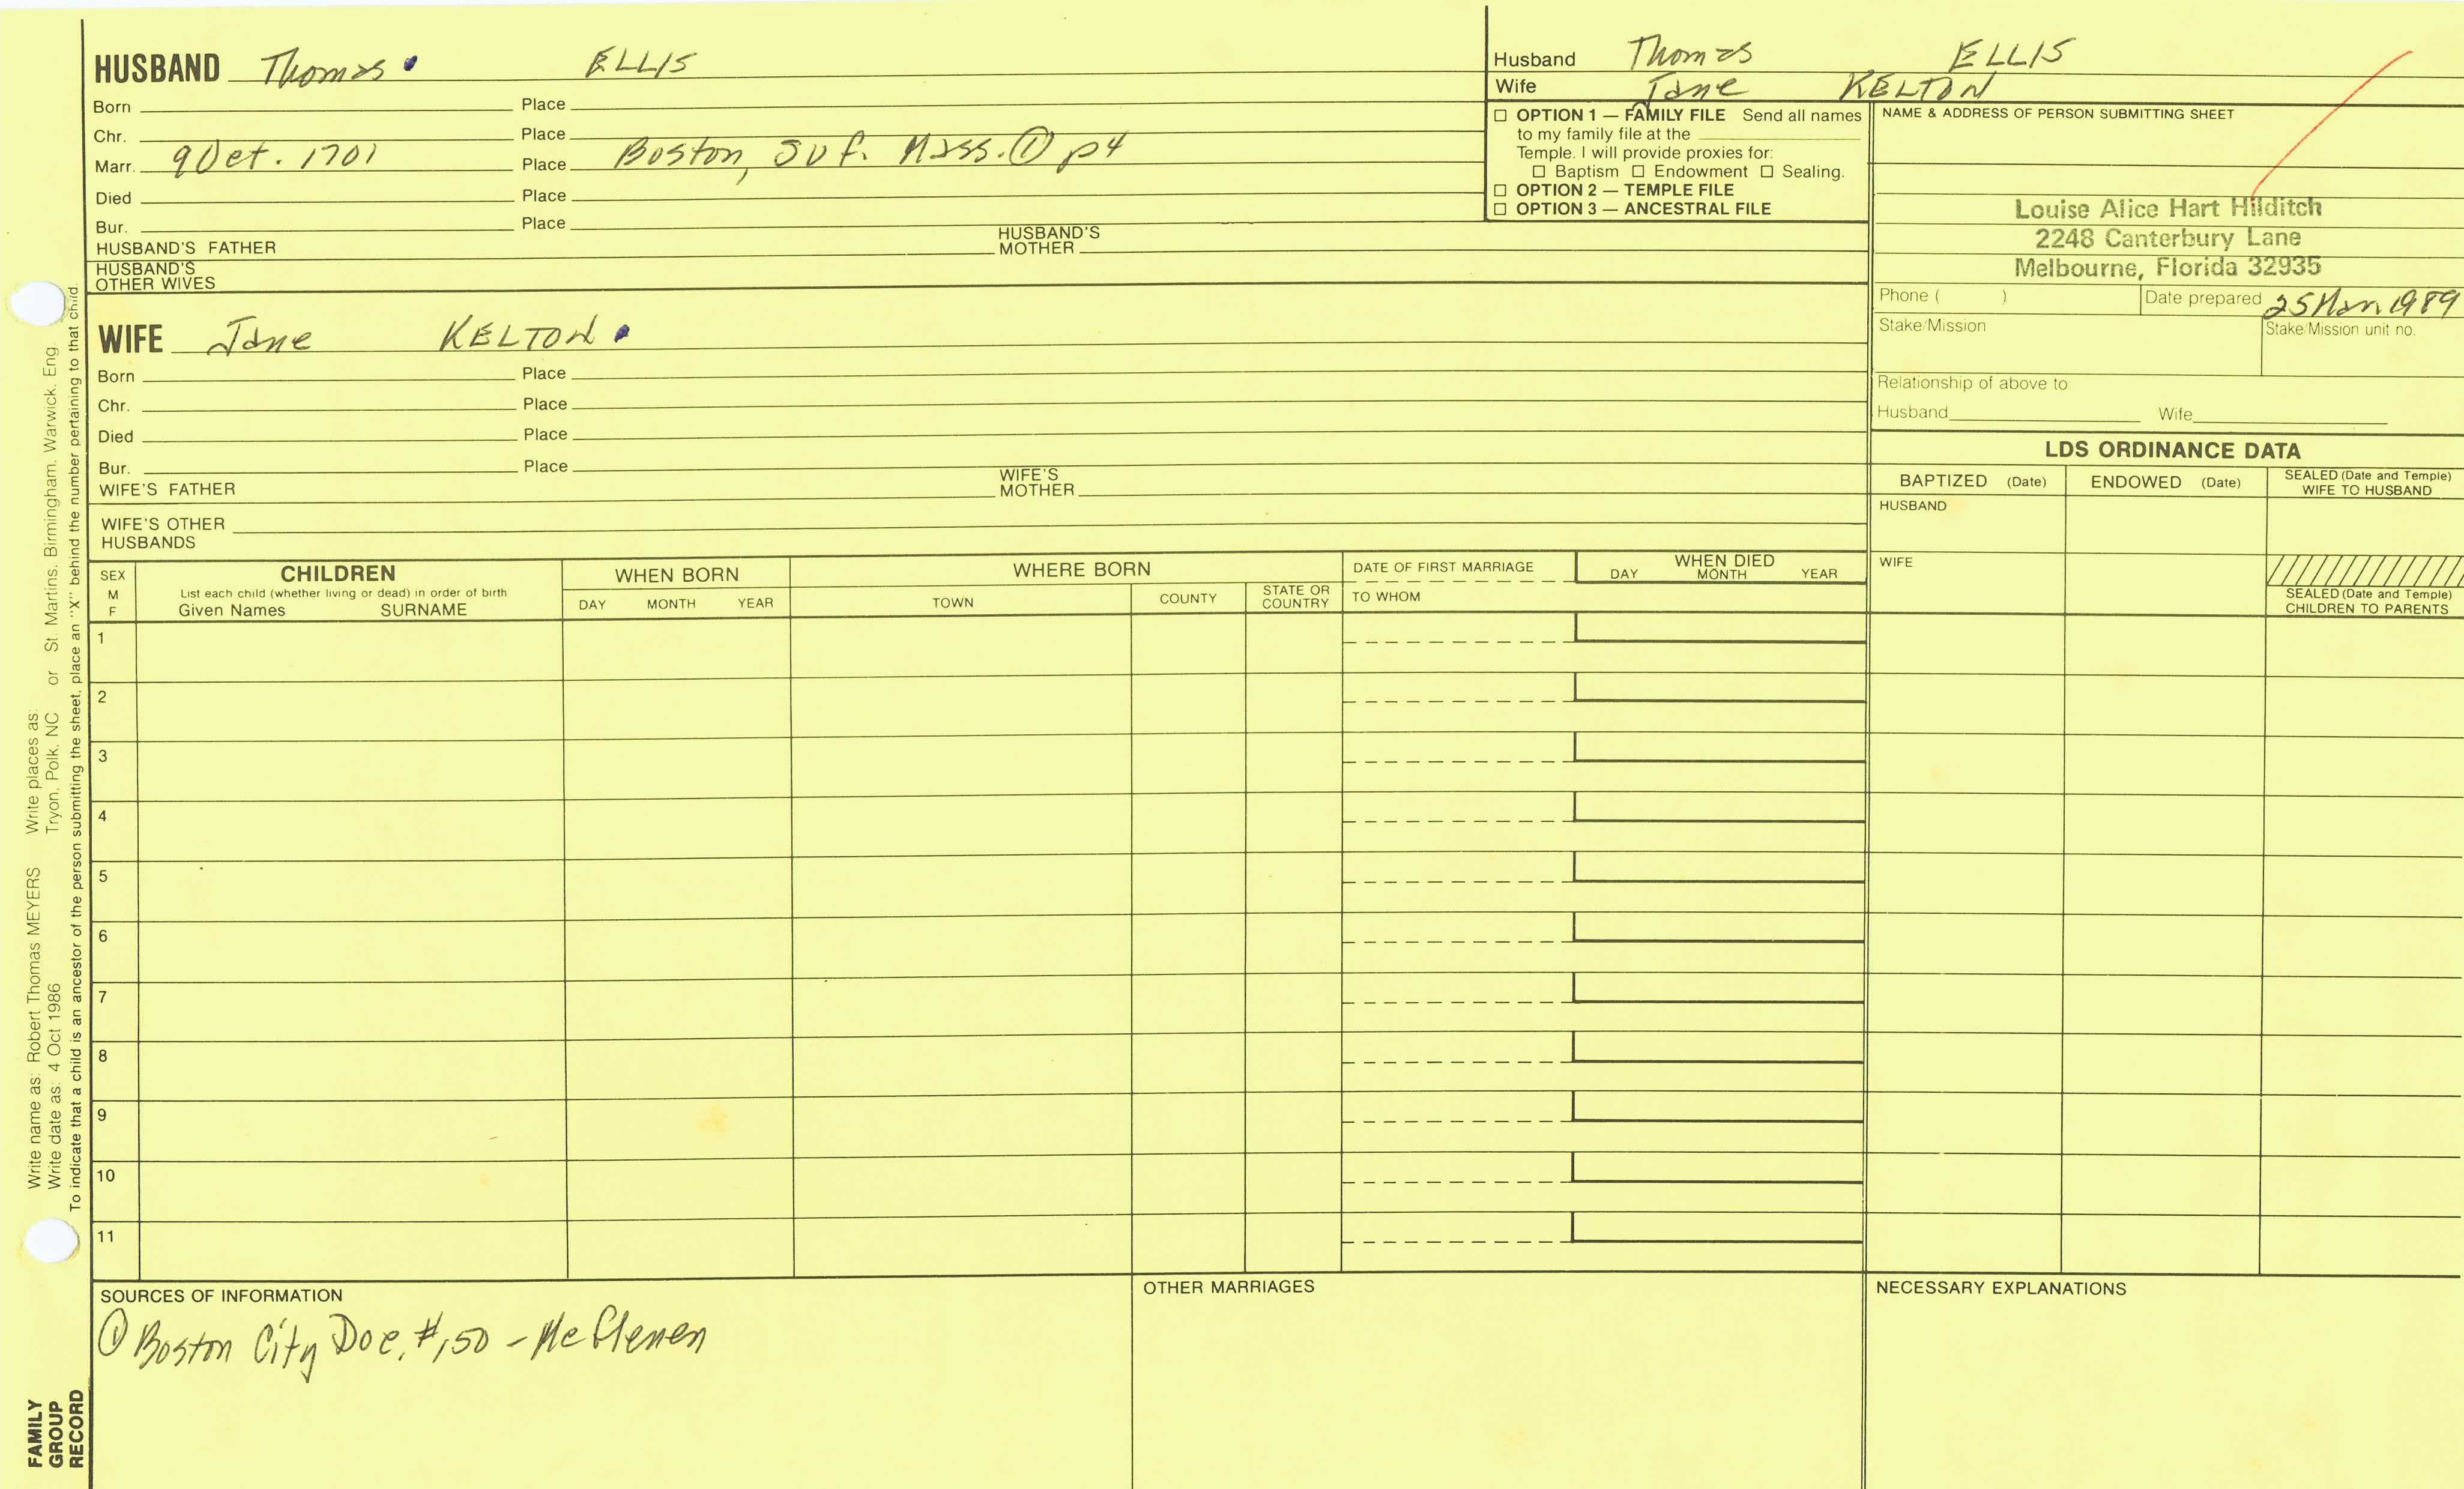 HUSBAND Thomas ELLIS
Born Place
Chr. Place
Marr. 9 Oct. 1701 Place Boston, Suf. Mass. ① p4
Died Place
Bur. Place
HUSBAND'S FATHER HUSBAND'S MOTHER
HUSBAND'S OTHER WIVES
Husband Thomas ELLIS
Wife Jane KELTON
☐ OPTION 1 — FAMILY FILE Send all names
to my family file at the
Temple. I will provide proxies for:
☐ Baptism ☐ Endowment ☐ Sealing.
☐ OPTION 2 — TEMPLE FILE
☐ OPTION 3 — ANCESTRAL FILE
NAME & ADDRESS OF PERSON SUBMITTING SHEET
Louise Alice Hart Hilditch
2248 Canterbury Lane
Melbourne, Florida 32935
Phone ( ) Date prepared 25 Mar 1989
Stake/Mission Stake/Mission unit no.
Relationship of above to
Husband Wife
WIFE Jane KELTON
Born Place
Chr. Place
Died Place
Bur. Place
WIFE'S FATHER WIFE'S MOTHER
WIFE'S OTHER HUSBANDS
LDS ORDINANCE DATA
BAPTIZED (Date) ENDOWED (Date) SEALED (Date and Temple) WIFE TO HUSBAND
HUSBAND
WIFE
SEALED (Date and Temple) CHILDREN TO PARENTS
SEX M F
CHILDREN
List each child (whether living or dead) in order of birth
Given Names SURNAME
WHEN BORN
DAY MONTH YEAR
WHERE BORN
TOWN COUNTY STATE OR COUNTRY
DATE OF FIRST MARRIAGE
TO WHOM
WHEN DIED
DAY MONTH YEAR
1
2
3
4
5
6
7
8
9
10
11
SOURCES OF INFORMATION
① Boston City Doc. #150 - McGlenen
OTHER MARRIAGES
NECESSARY EXPLANATIONS
Write name as: Robert Thomas MEYERS Write places as:
Write date as: 4 Oct 1986 Tryon, Polk, NC or St. Martins, Birmingham, Warwick, Eng
To indicate that a child is an ancestor of the person submitting the sheet, place an "X" behind the number pertaining to that child.
FAMILY
GROUP
RECORD